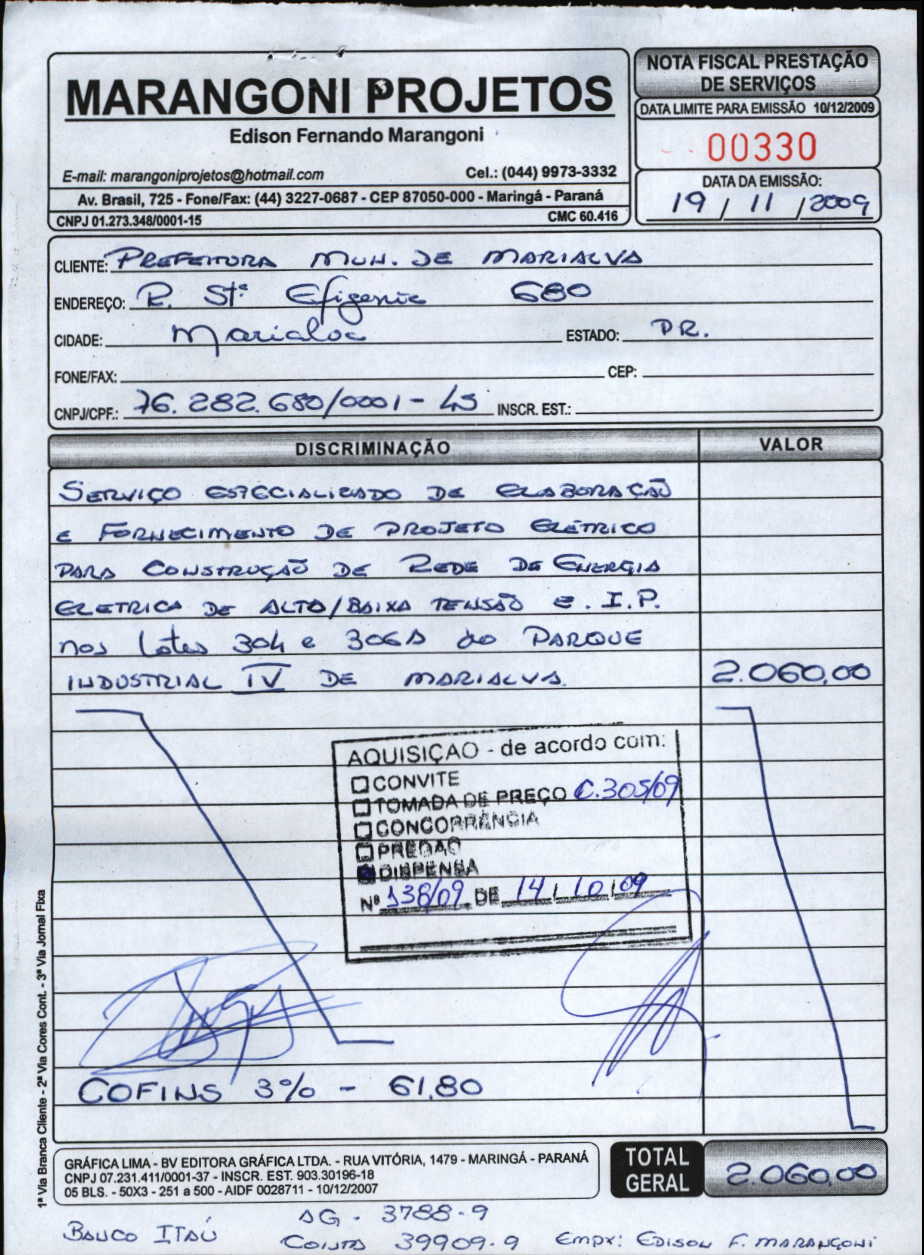 MARANGONI PROJETOS
Edison Fernando Marangoni
E-mail: marangoniprojetos@hotmail.com Cel.: (044) 9973-3332
Av. Brasil, 725 - Fone/Fax: (44) 3227-0687 - CEP 87050-000 - Maringá - Paraná
CNPJ 01.273.348/0001-15 CMC 60.416
NOTA FISCAL PRESTAÇÃO
DE SERVIÇOS
DATA LIMITE PARA EMISSÃO 10/12/2009
00330
DATA DA EMISSÃO:
19 / 11 / 2009
CLIENTE: PREFEITURA MUN. DE MARIALVA
ENDEREÇO: R. Stª Efigenia 680
CIDADE: Marialva ESTADO: PR.
FONE/FAX: CEP:
CNPJ/CPF.: 76.282.680/0001-45 INSCR. EST.:
DISCRIMINAÇÃO VALOR
SERVIÇO ESPECIALIZADO DE ELABORAÇÃO
E FORNECIMENTO DE PROJETO ELÉTRICO
PARA CONSTRUÇÃO DE REDE DE ENERGIA
ELETRICA DE ALTO/BAIXA TENSÃO E. I.P.
nos lotes 304 e 306A do PARQUE
INDUSTRIAL IV DE MARIALVA. 2.060,00
AQUISIÇAO - de acordo com:
CONVITE
TOMADA DE PREÇO C.305/09
CONCORRÊNCIA
PREGAO
DISPENSA
Nº 138/09 DE 14/10/09
COFINS 3% - 61,80
1ª Via Branca Cliente - 2ª Via Cores Cont. - 3ª Via Jornal Fixa
GRÁFICA LIMA - BV EDITORA GRÁFICA LTDA. - RUA VITÓRIA, 1479 - MARINGÁ - PARANÁ
CNPJ 07.231.411/0001-37 - INSCR. EST. 903.30196-18
05 BLS. - 50X3 - 251 a 500 - AIDF 0028711 - 10/12/2007
TOTAL
GERAL 2.060,00
BANCO ITAÚ AG. 3788-9
CONTA 39909-9 EDISON F. MARANGONI